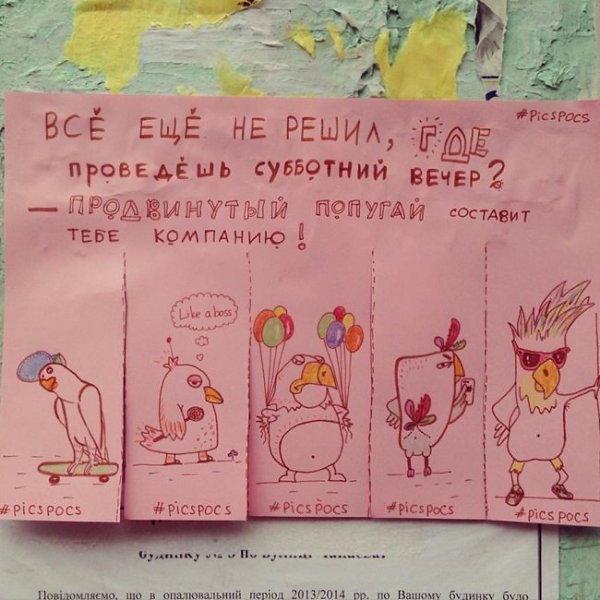 #PicsPocs
ВСЁ ЕЩЁ НЕ РЕШИЛ, ГДЕ
ПРОВЕДЁШЬ СУББОТНИЙ ВЕЧЕР?
— ПРОДВИНУТЫЙ ПОПУГАЙ СОСТАВИТ
ТЕБЕ КОМПАНИЮ!
Like a boss
#PicsPocs
#PicsPocs
#PicsPocs
#PicsPocs
#PicsPocs
Повідомляємо, що в опалювальний період 2013/2014 рр. по Вашому будинку було